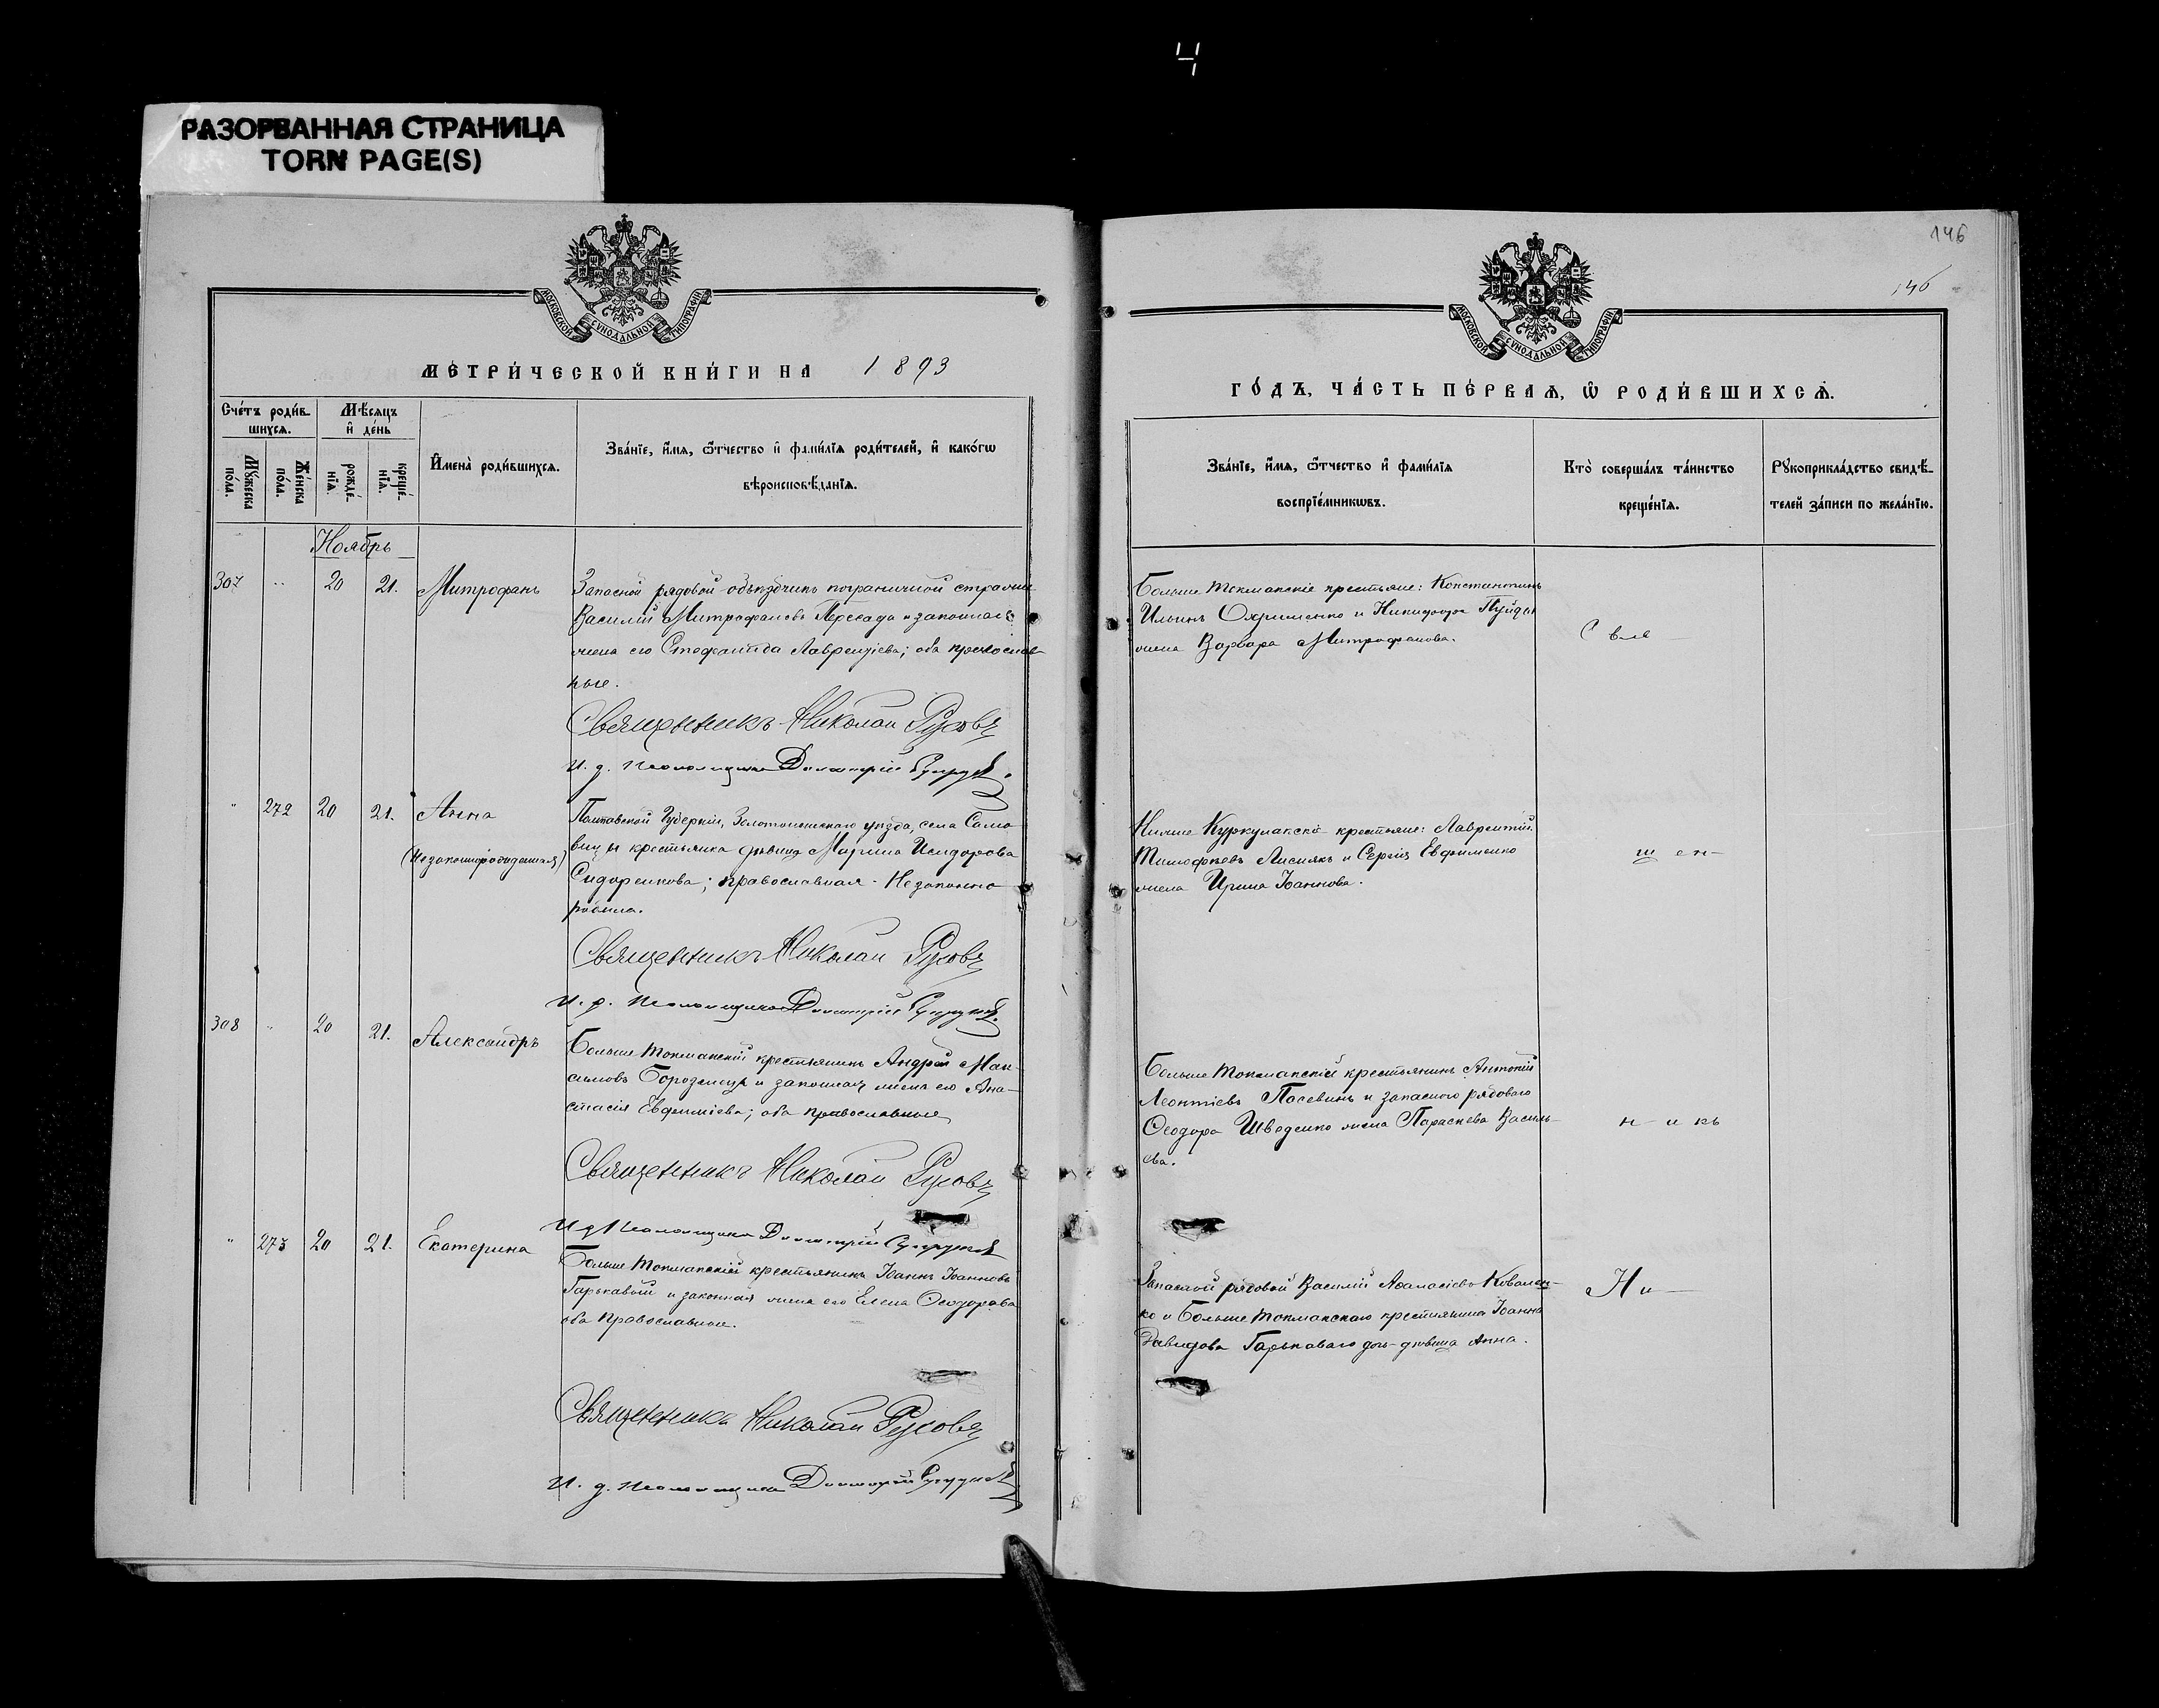 Ч
РАЗОРВАННАЯ СТРАНИЦА
TORN PAGE(S)
146
146
МОСКОВСКОЙ СѴНОДАЛЬНОЙ ТИПОГРАФІИ
МЕТРИ́ЧЕСКОЙ КНИ́ГИ НА 1893
Сче́тъ роди́в-
шихсѧ.
Мѣ́сѧцъ
и҆ де́нь
Мꙋ́жеска
по́ла.
Же́нска
по́ла.
рожде́-
нїѧ.
креще́-
нїѧ.
И҆мена̀ роди́вшихсѧ.
Зва́нїе, и҆́мѧ, ѻ҆́тчество и҆ фами́лїѧ роди́телей, и҆ како́гѡ
вѣроисповѣ́данїѧ.
Ноябрь
307 " 20 21. Митрофанъ
Запасной рядовой объѣздчикъ пограничной стражи
Василій Митрофановъ Пересада и законная
жена его Стефанида Лаврентіева; оба православ-
ные.
Священникъ Николай Русовъ
И. д. псаломщика Димитрій
" 272 20 21. Анна
(Незаконнорожденная)
Полтавской Губерніи, Золотоношскаго уѣзда, села
крестьянка дѣвица Марина Исидорова
Сидоренкова; православная. Незаконно
родила.
Священникъ Николай Русовъ
И. д. псаломщика Димитрій
308 " 20 21. Александръ
Больше Токмакскій крестьянинъ Андрей Мак-
симовъ Бородинецъ и законная жена его Ана-
стасія Евфиміева; оба православные
Священникъ Николай Русовъ
И д псаломщика Димитрій
" 273 20 21. Екатерина
Больше Токмакскій крестьянинъ Іоаннъ Іоанновъ
Гарькавый и законная жена его Елена Ѳеодорова
оба православные.
Священникъ Николай Русовъ
И. д. псаломщика Димитрій
МОСКОВСКОЙ СѴНОДАЛЬНОЙ ТИПОГРАФІИ
ГО́ДЪ, ЧА́СТЬ ПЕ́РВАѦ, Ѡ҆ РОДИ́ВШИХСѦ.
Зва́нїе, и҆́мѧ, ѻ҆́тчество и҆ фами́лїѧ
воспрїе́мникѡвъ.
Кто̀ соверша́лъ та́инство
креще́нїѧ.
Рꙋкоприкла́дство свидѣ́-
телей за́писи по жела́нїю.
Больше Токмакскіе крестьяне: Константинъ
Ильинъ Охрименко и Никифора Пуйды
жена Варвара Митрофанова.
Свя-
Нижне Куркулакскіе крестьяне: Лаврентій
Тимофѣевъ Лисилкъ и Сергія Евфименко
жена Ирина Іоаннова.
щ ен-
Больше Токмакскій крестьянинъ Антоній
Леонтіевъ Пасевинъ и запасного рядового
Ѳеодора Шведенко жена Параскева Василь-
ева.
н-икъ
Запасной рядовой Василій Аѳанасіевъ Ковален-
ко и Больше Токмакскаго крестьянина Іоанна
Давидова Гарькаваго дочь-дѣвица Анна.
Ни-